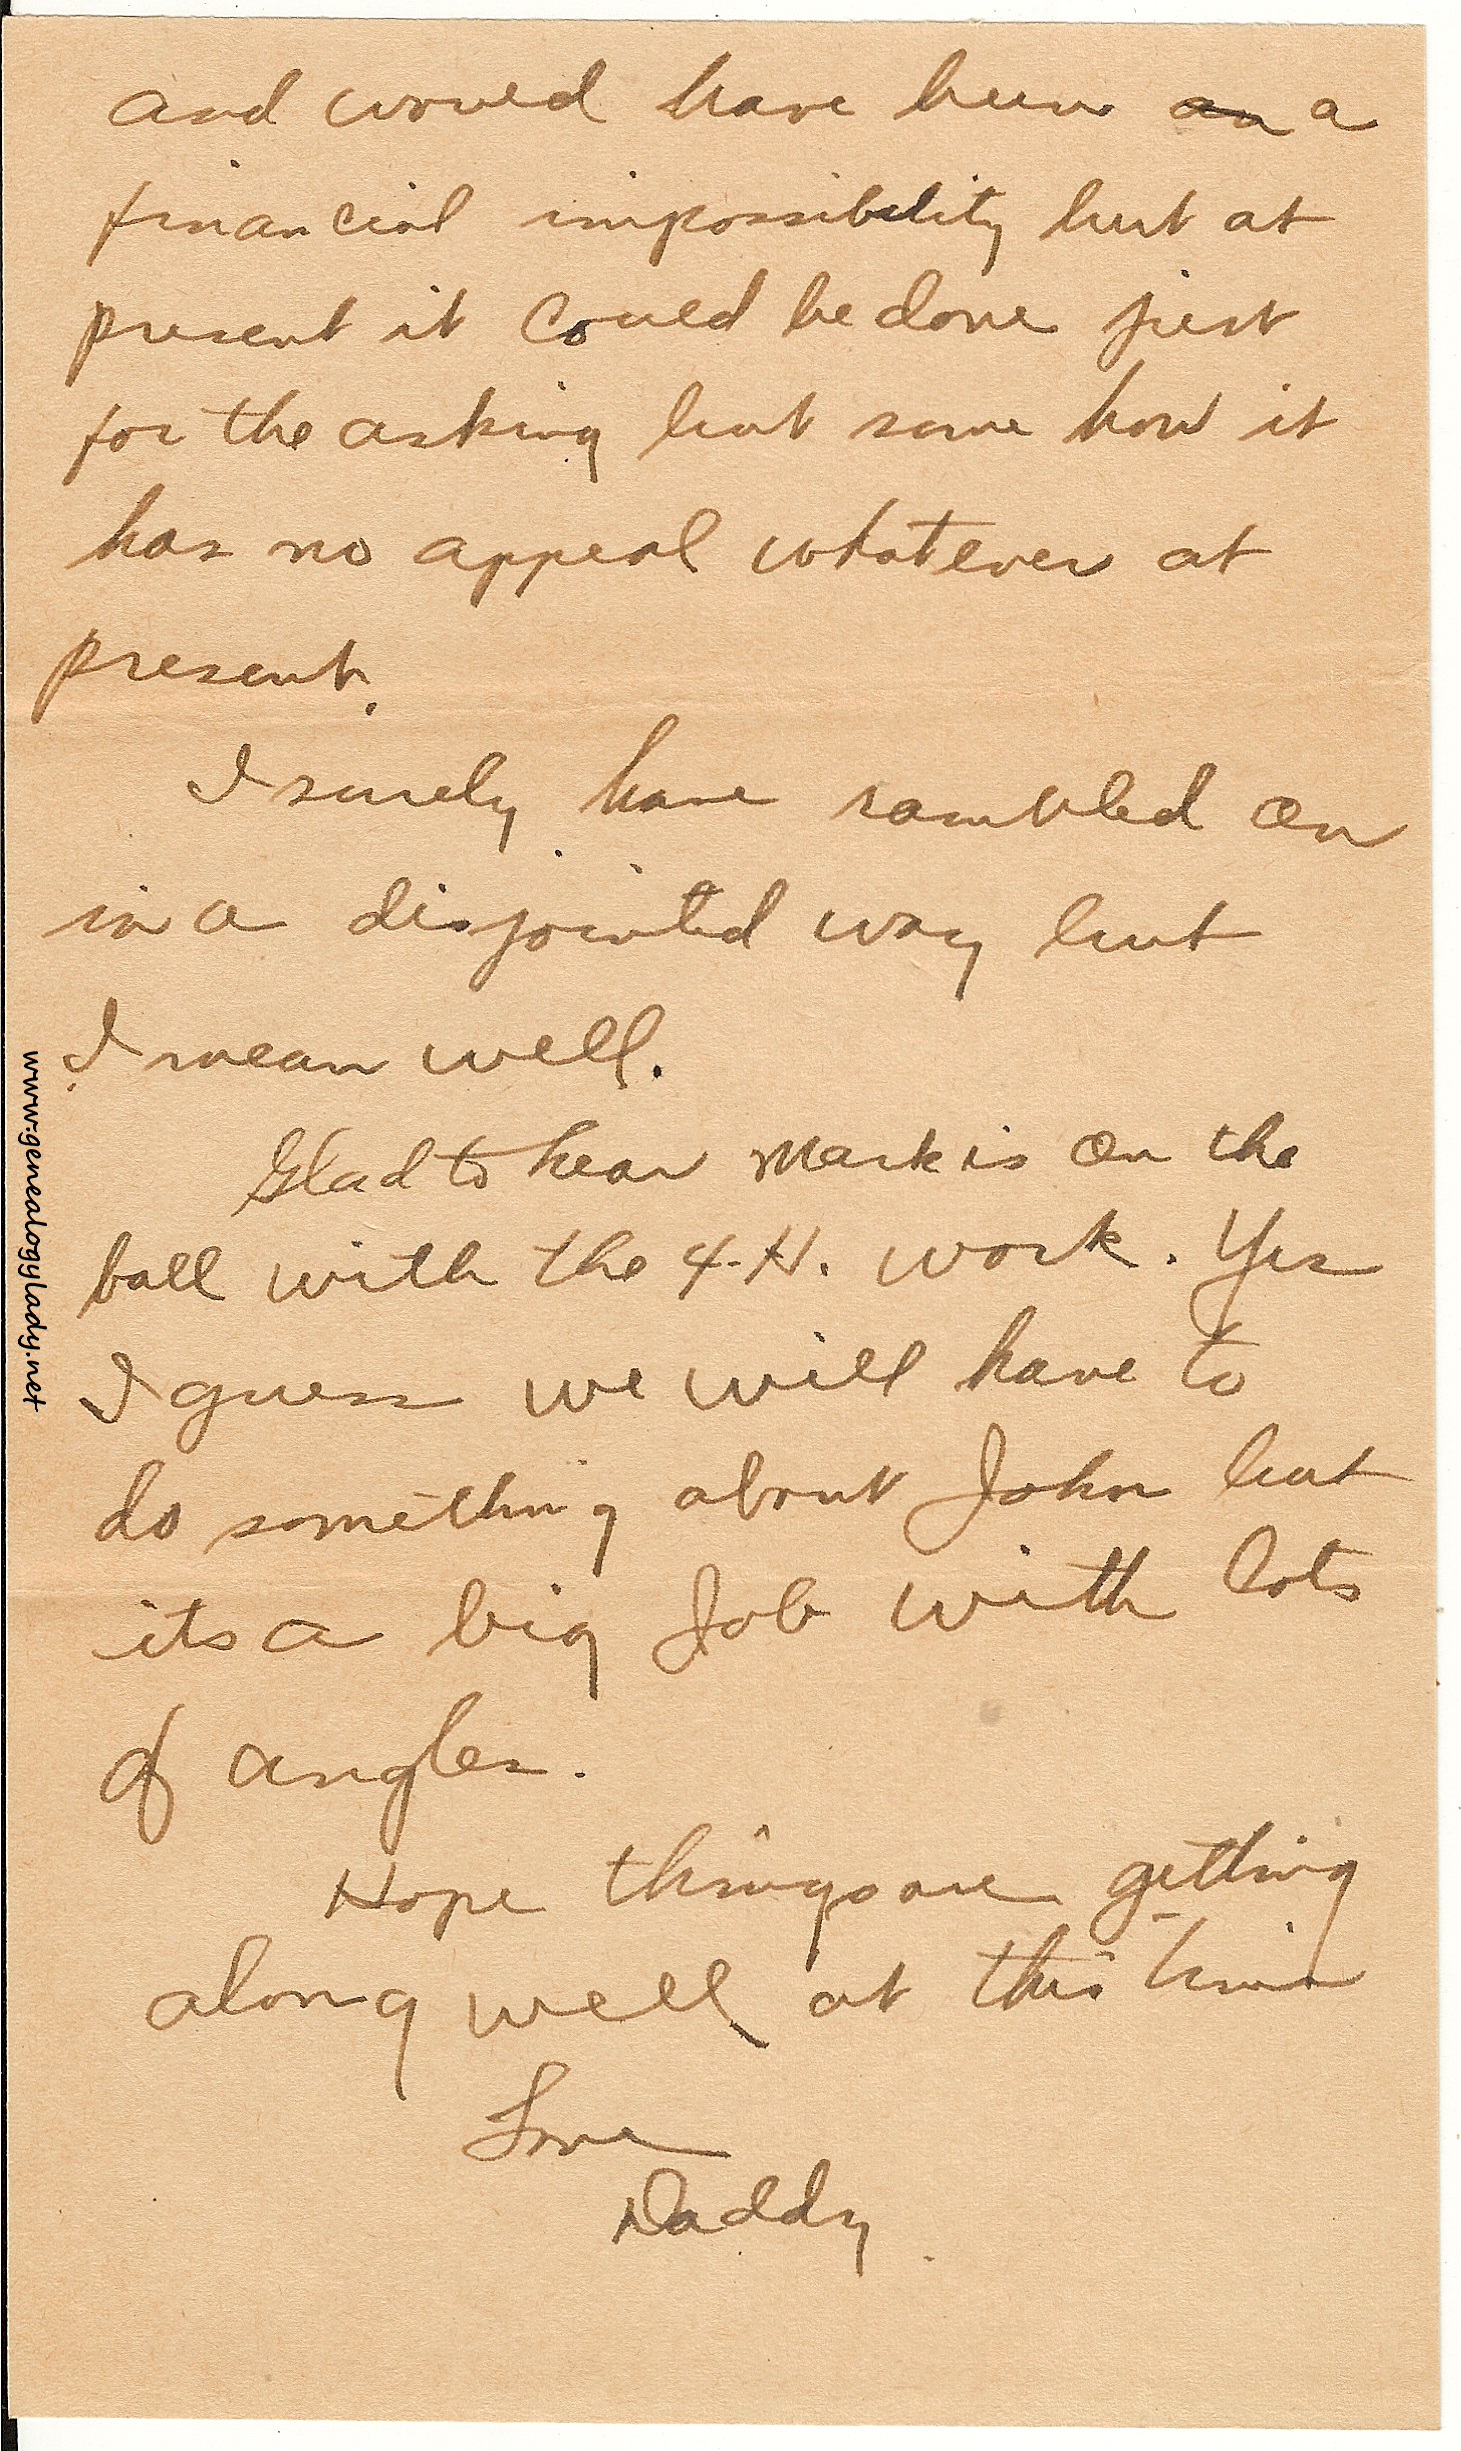 and would have been an a
financial impossibility but at
present it could be done just
for the asking but some how it
has no appeal whatever at
present.
I surely have rambled on
in a disjointed way but
I mean well.
Glad to hear Mark is on the
ball with the 4-H. work. Yes
I guess we will have to
do something about John but
its a big Job with lots
of angles.
Hope things are getting
along well at this time
Love
Daddy
www.genealogylady.net